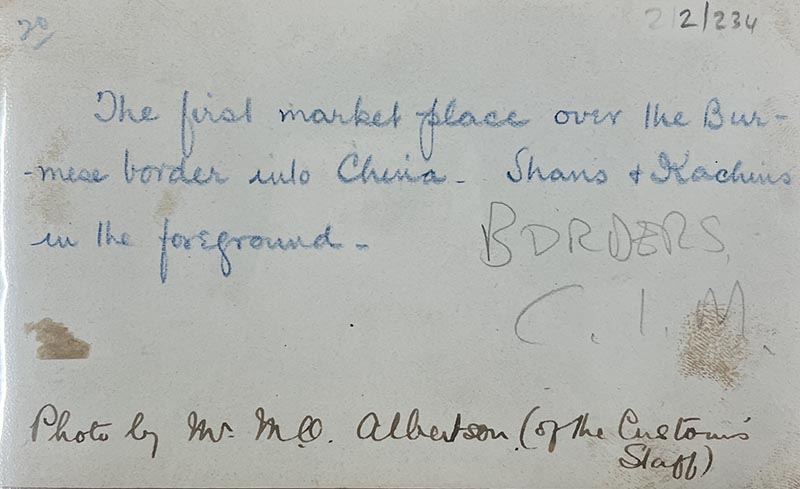 20
2/2/234
The first market place over the Bur-
-mese border into China - Shans & Kachins
in the foreground -
BORDERS,
C. I. M.
Photo by Mr. M.O. Albertson (of the Customs
Staff)